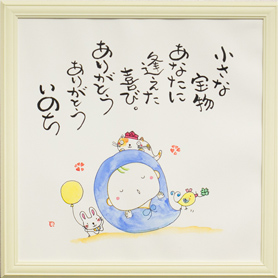 小さな
宝物
あなたに
逢えた
喜び。
ありがとう
ありがとう
いのち